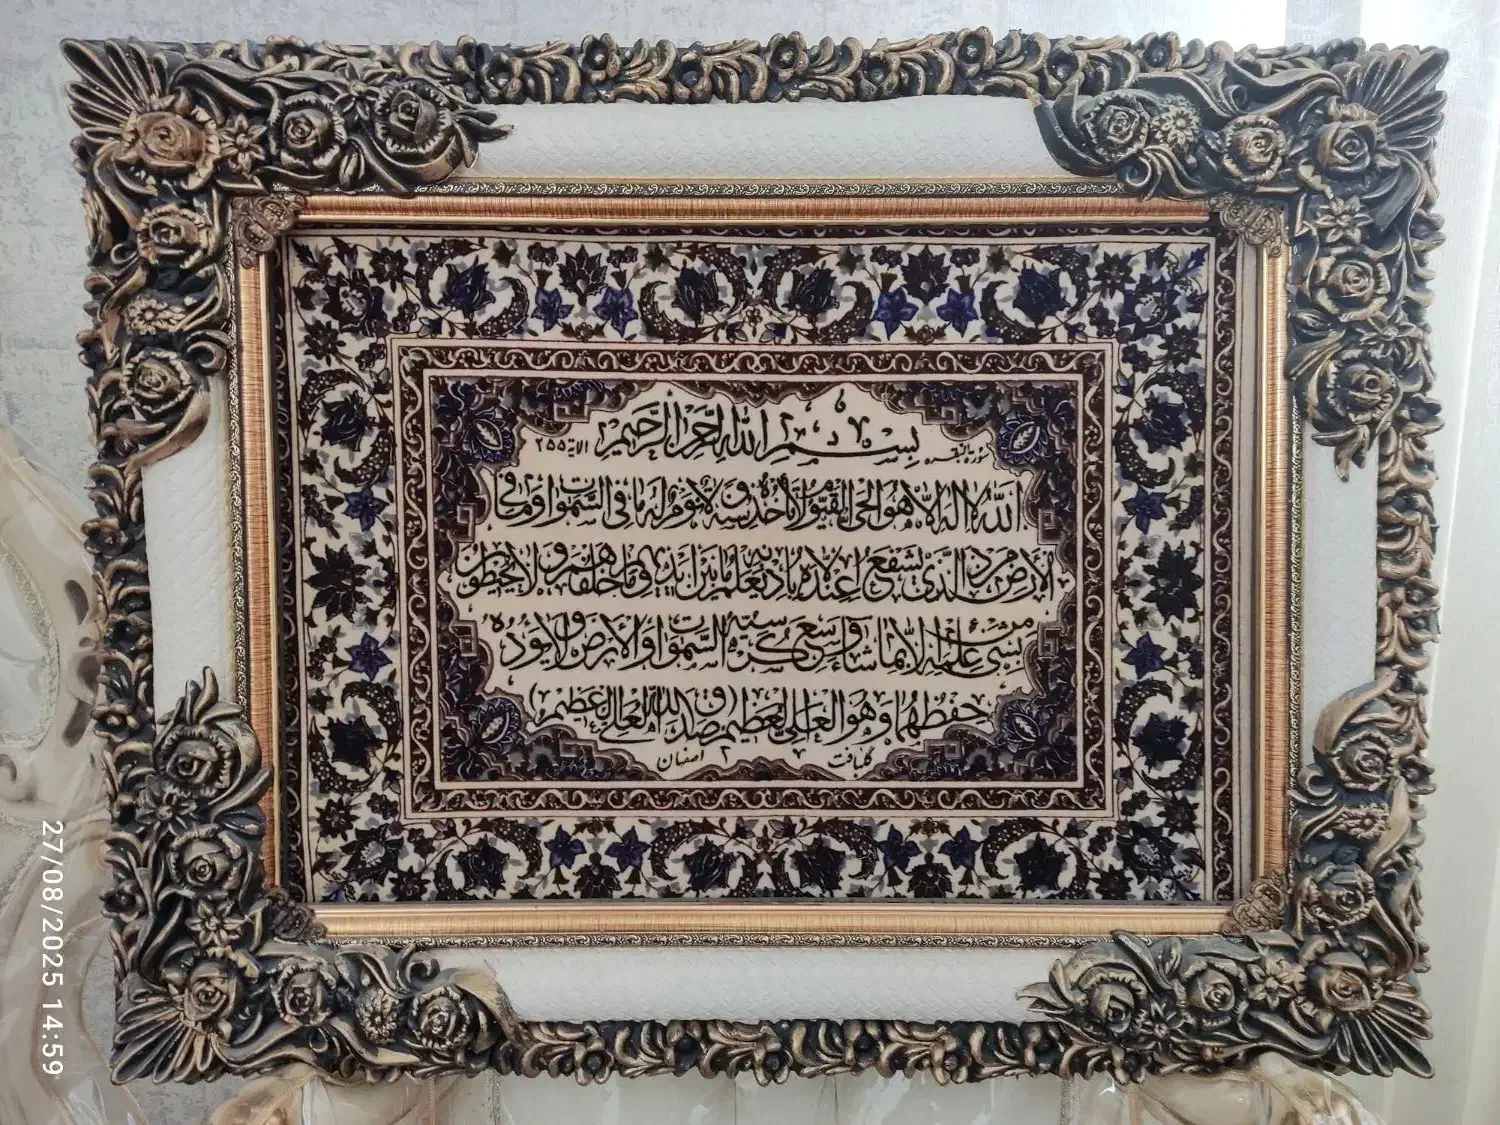 سورة البقره بسم الله الرحمن الرحيم الاية ٢٥٥
الله لا اله الا هو الحي القيوم لا تأخذه سنة ولا نوم له ما في السموات وما في
الارض من ذ الذي يشفع عنده الا باذنه يعلم ما بين ايديهم وما خلفهم ولا يحيطون
بشيء من علمه الا بما شاء وسع كرسيه السموات والارض ولا يوده
حفظهما وهو العلي العظيم (صدق الله العلي العظيم)
گلبافت ٢ اصفهان
27/08/2025 14:59